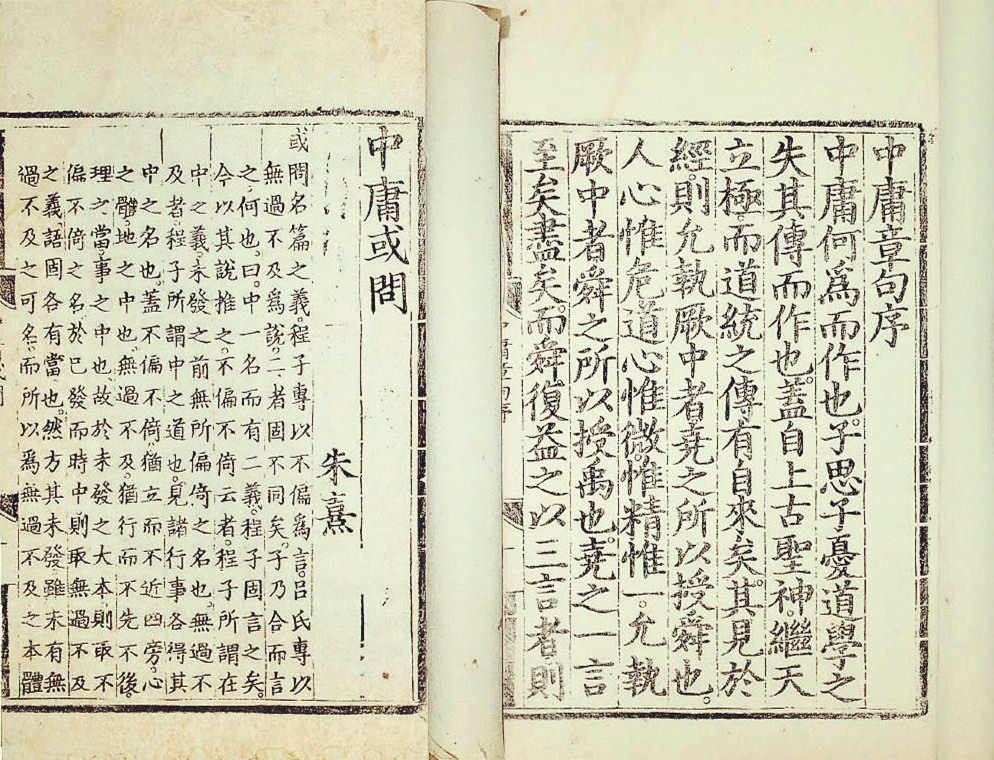 中庸章句序
中庸何爲而作也。子思子憂道學之
失其傳而作也。蓋自上古聖神。繼天
立極。而道統之傳有自來矣。其見於
經。則允執厥中者。堯之所以授舜也。
人心惟危。道心惟微。惟精惟一。允執
厥中者。舜之所以授禹也。堯之一言
至矣盡矣。而舜復益之以三言者。則
中庸或問
朱熹
或問名篇之義。程子專以不偏爲言。呂氏專以
無過不及爲說。二者固不同矣。子乃合而言
之。何也。曰。中一名而有二義。程子固言之矣。
今以其說推之。不偏不倚云者。程子所謂在
中之義。未發之前無所偏倚之名也。無過不
及者。程子所謂中之道也。見諸行事各得其
中之名也。蓋不偏不倚。猶立而不近四旁。心
之體。地之中也。無過不及。猶行而不先不後。
理之當。事之中也。故於未發之大本。則取不
偏不倚之名。於已發而時中。則取無過不及
之義。語固各有當也。然方其未發。雖未有無
過不及之可名。而所以爲無過不及之本體